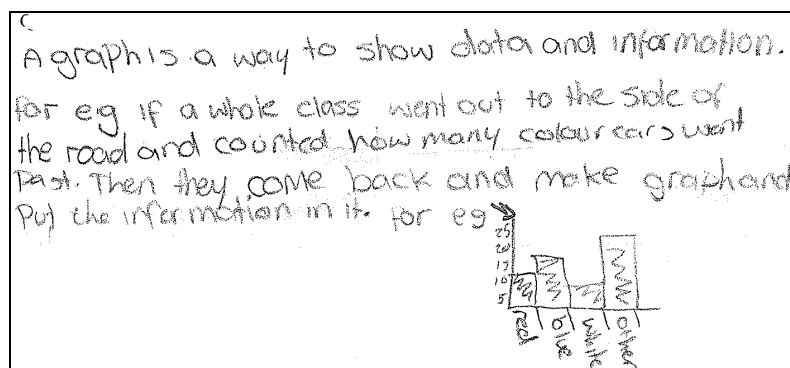 C
A graph is a way to show data and information.
for eg if a whole class went out to the side of
the road and counted how many colour cars went
past. Then they come back and make graph and
Put the information in it. for eg
25
20
15
10
5
red
blue
white
other